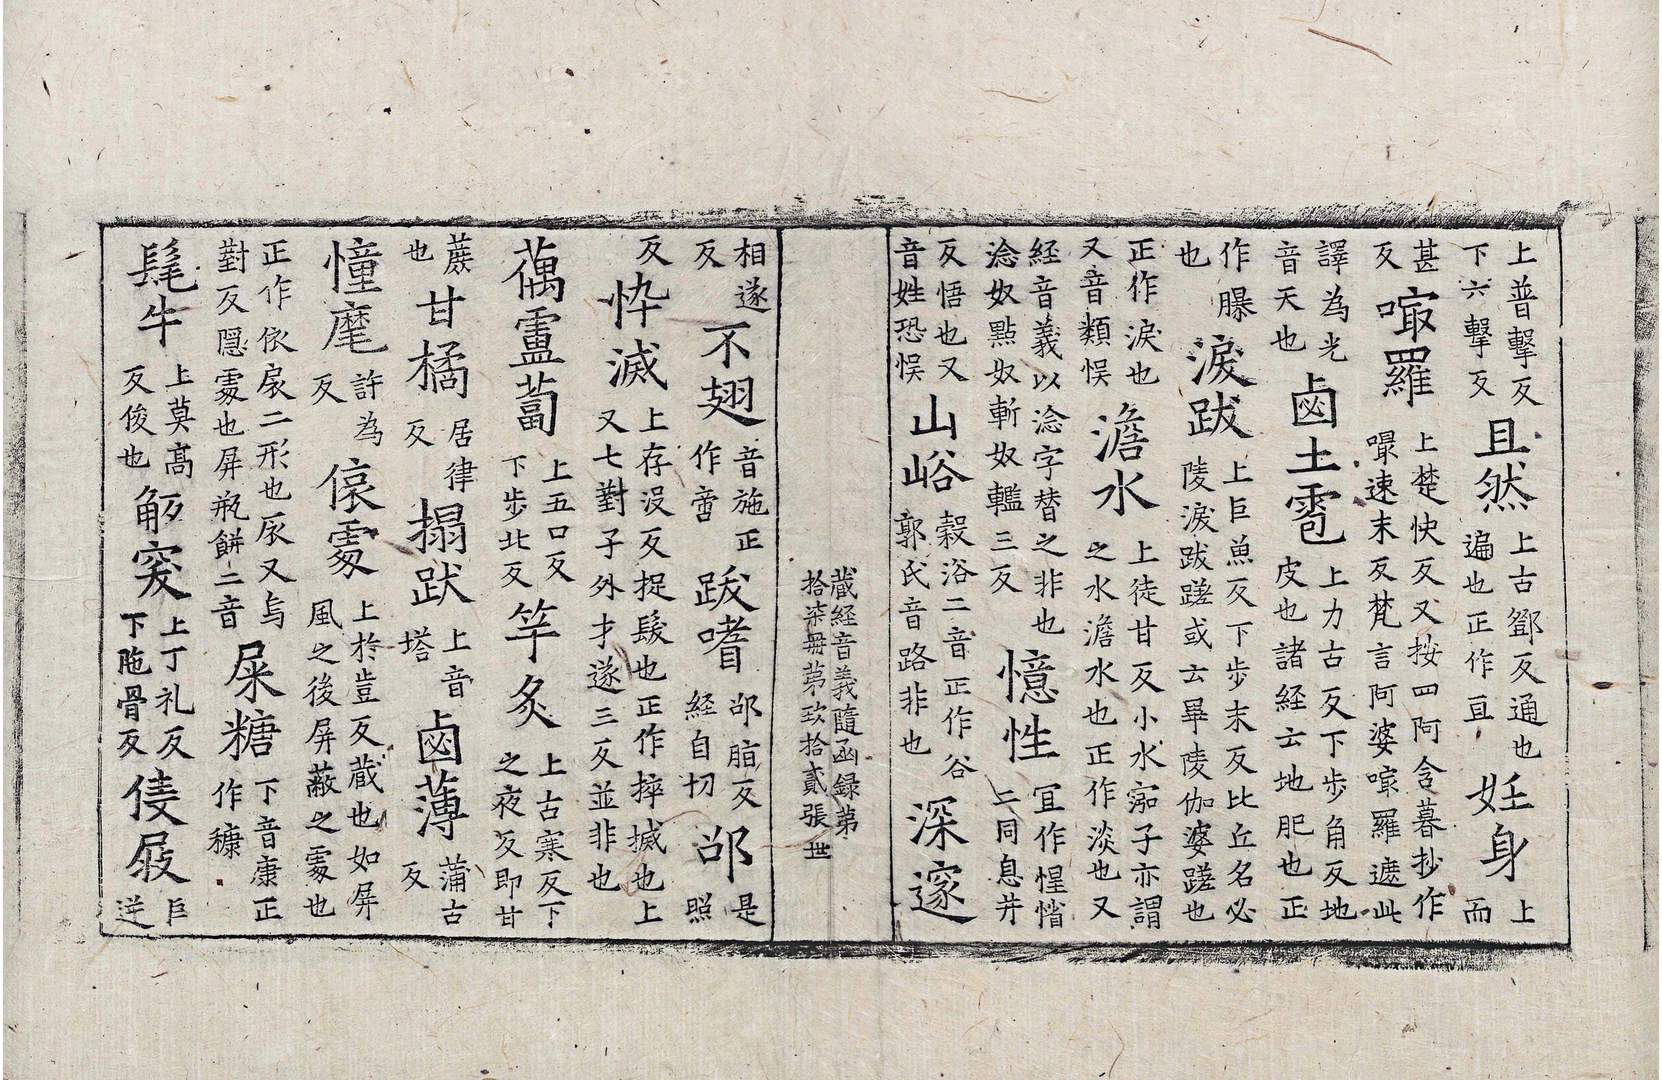 上普擊反下六擊反 且然 上古鄧反通也遍也正作亘 妊身 上而
甚反 羅 上楚快反又按四阿含暮抄作嘬速末反梵言阿婆羅遮此
譯為光音天也 鹵土雹 上力古反下步角反地皮也諸經云地肥也正
作也 淚跋 上巨魚反下步末反比丘名必陵淚跋蹉或云畢陵伽婆蹉也
正作淚也又音類悮 澹水 上徒甘反小水子亦謂之水澹水也正作淡也又
經音義以淰字替之非也淰奴點奴斬奴轞三反 憶性 冝作惺惛二同息井
反悟也又音姓恐悮 山峪 穀浴二音正作谷郭氏音路非也 深邃
藏經音義隨函録第拾柒冊第玖拾貳張 世
相遂反 不翅 音施正作啻 跋嗜 邵脂反經自切 邵 是照
反 忰滅 上存没反捉髮也正作捽搣也上又七對子外才遂三反並非也
藕盧蔔 上五口反下步北反 竿炙 上古寒反下之夜反即甘
蔗也 甘橘 居律反 搨趺 上音塔 鹵薄 蒲古反
憧麾 許為反 偯處 上於豈反蔵也如屏風之後屏蔽之處也
正作依扆二形也扆又烏對反隱處也屏瓶餅二音 屎糖 下音康正作穅
髦牛 上莫高反俊也 觝突 上丁礼反下陁骨反 倢屐 巨逆